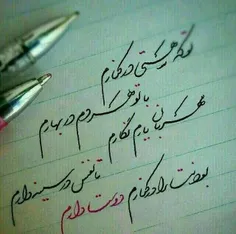 توکه هستی در کنارم
با تو هر دم در بهارم
مهربان یارم نگارم
تا نفس در سینه دارم
بودنت را در کنارم دوست دارم